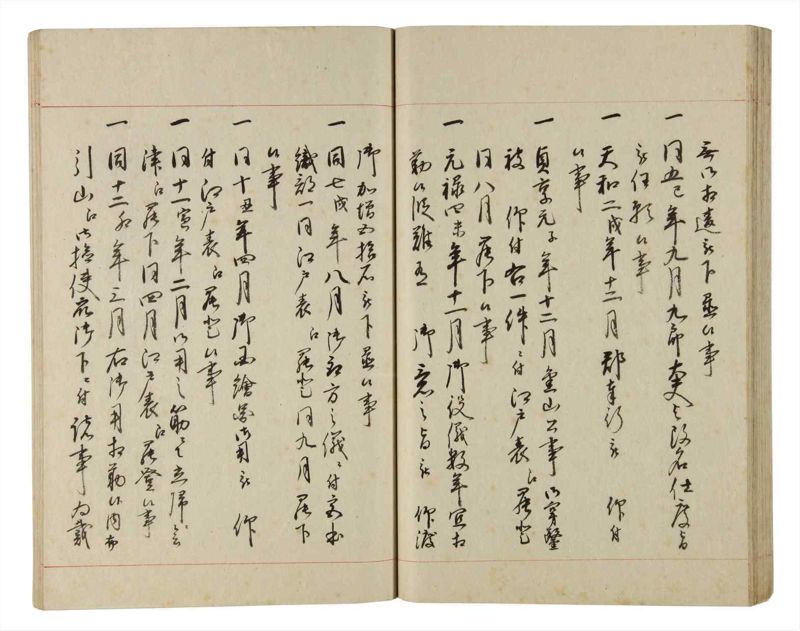 無御相違被下置候事
一 同五巳年九月九郎太夫と改名仕度旨
被任願候事
一 天和二戌年十二月郡奉行被 仰付
候事
一 貞享元子年十二月 山公事御穿鑿
被 仰付右一件ニ付江戸表江罷登
同八月罷下候事
一 元禄四未年十一月御役儀数年宜相
勤候段難有 御意之旨被 仰渡
御加増五拾石被下置候事
一 同七戌年八月 方之儀ニ付
織部一同江戸表江罷登同九月罷下
候事
一 同十丑年四月御国絵図御用被 仰
付江戸表江罷登候事
一 同十一寅年二月御用之筋 帰会
津江罷下同四月江戸表江罷登候事
一 同十二卯年三月右御用相勤候内
引山江御検使 御下ニ付諸事為戴